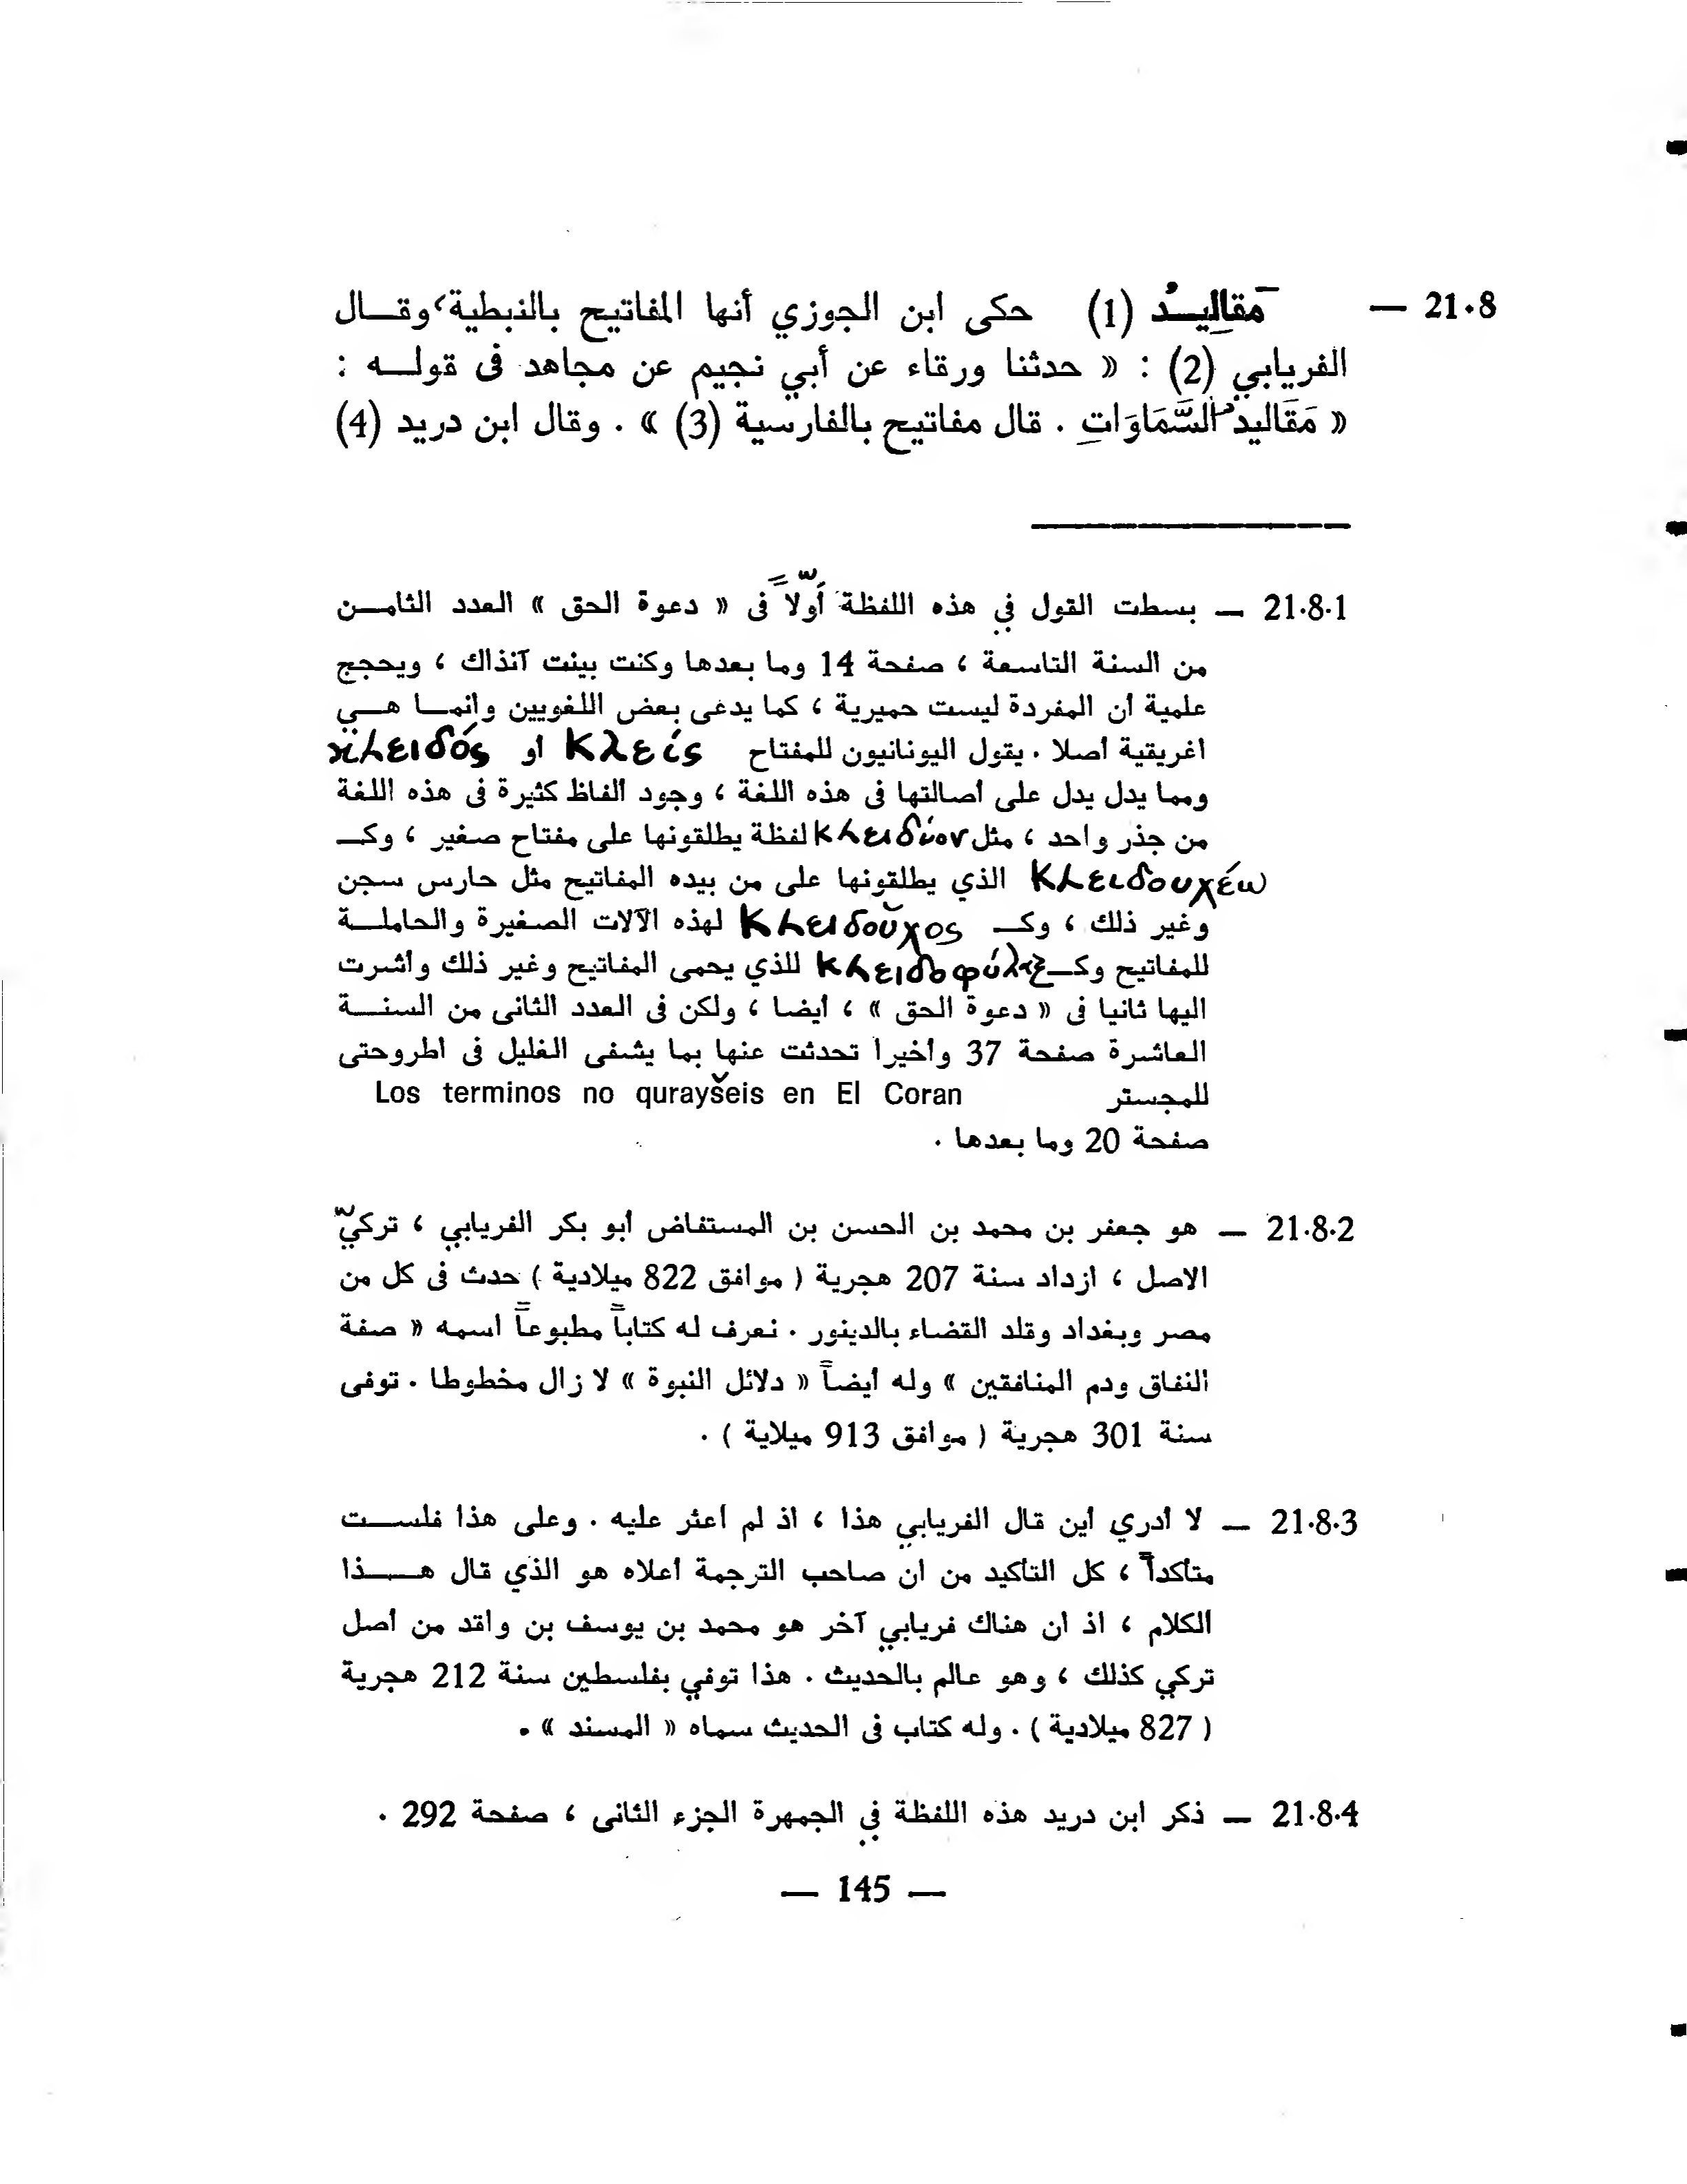 21.8 — مَقَالِيدُ (1) حكى ابن الجوزي أنها المفاتيح بالنبطية، وقال
الفريابي (2) : « حدثنا ورقاء عن أبي نجيم عن مجاهد فى قوله :
« مَقَاليدُ السَّمَاوَاتِ . قال مفاتيح بالفارسية (3) » . وقال ابن دريد (4)
21.8.1 — بسطت القول في هذه اللفظة أوّلاً فى « دعوة الحق » العدد الثامن
من السنة التاسعة ، صفحة 14 وما بعدها وكنت بينت آنذاك ، وبحجج
علمية أن المفردة ليست حميرية ، كما يدعى بعض اللغويين وانما هي
اغريقية أصلا . يقول اليونانيون للمفتاح κλείς أو κλειδός
ومما يدل يدل على أصالتها فى هذه اللغة ، وجود ألفاظ كثيرة فى هذه اللغة
من جذر واحد ، مثل κλειδύον لفظة يطلقونها على مفتاح صغير ، وكـ
κλειδουχέω الذي يطلقونها على من بيده المفاتيح مثل حارس سجن
وغير ذلك ، وكـ κλειδοῦχος لهذه الآلات الصغيرة والحاملة
للمفاتيح وكـ κλειδοφύλαξ للذي يحمى المفاتيح وغير ذلك وأشرت
اليها ثانيا فى « دعوة الحق » ، أيضا ، ولكن فى العدد الثانى من السنة
العاشرة صفحة 37 وأخيرا تحدثت عنها بما يشفى الغليل فى اطروحتى
للمجستر Los terminos no qurayšeis en El Coran
صفحة 20 وما بعدها .
21.8.2 — هو جعفر بن محمد بن الحسن بن المستفاض أبو بكر الفريابي ، تركيّ
الاصل ، ازداد سنة 207 هجرية ( موافق 822 ميلادية ) حدث فى كل من
مصر وبغداد وقلد القضاء بالدينور . نعرف له كتاباً مطبوعاً اسمه « صفة
النفاق ودم المنافقين » وله أيضاً « دلائل النبوة » لا زال مخطوطا . توفى
سنة 301 هجرية ( موافق 913 ميلاية ) .
21.8.3 — لا أدري أين قال الفريابي هذا ، اذ لم أعثر عليه . وعلى هذا فلست
متأكداً ، كل التأكيد من ان صاحب الترجمة أعلاه هو الذي قال هذا
الكلام ، اذ ان هناك فريابي آخر هو محمد بن يوسف بن واقد من أصل
تركي كذلك ، وهو عالم بالحديث . هذا توفي بفلسطين سنة 212 هجرية
( 827 ميلادية ) . وله كتاب فى الحديث سماه « المسند » .
21.8.4 — ذكر ابن دريد هذه اللفظة في الجمهرة الجزء الثانى ، صفحة 292 .
— 145 —